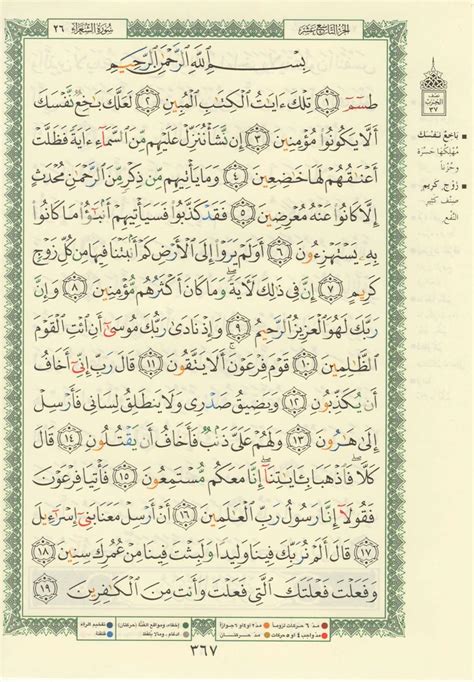 الجُزْءُ التَّاسِعَ عَشَرَ
سُورَةُ الشُّعَرَاءِ ٢٦
بِسْمِ اللَّهِ الرَّحْمَٰنِ الرَّحِيمِ
طسٓمٓ ١ تِلْكَ ءَايَٰتُ الْكِتَٰبِ الْمُبِينِ ٢ لَعَلَّكَ بَٰخِعٌ نَّفْسَكَ
أَلَّا يَكُونُوا۟ مُؤْمِنِينَ ٣ إِن نَّشَأْ نُنَزِّلْ عَلَيْهِم مِّنَ السَّمَآءِ ءَايَةً فَظَلَّتْ
أَعْنَٰقُهُمْ لَهَا خَٰضِعِينَ ٤ وَمَا يَأْتِيهِم مِّن ذِكْرٍ مِّنَ الرَّحْمَٰنِ مُحْدَثٍ
إِلَّا كَانُوا۟ عَنْهُ مُعْرِضِينَ ٥ فَقَدْ كَذَّبُوا۟ فَسَيَأْتِيهِمْ أَنۢبَٰٓؤُا۟ مَا كَانُوا۟
بِهِۦ يَسْتَهْزِءُونَ ٦ أَوَلَمْ يَرَوْا۟ إِلَى الْأَرْضِ كَمْ أَنۢبَتْنَا فِيهَا مِن كُلِّ زَوْجٍ
كَرِيمٍ ٧ إِنَّ فِى ذَٰلِكَ لَءَايَةً وَمَا كَانَ أَكْثَرُهُم مُّؤْمِنِينَ ٨ وَإِنَّ
رَبَّكَ لَهُوَ الْعَزِيزُ الرَّحِيمُ ٩ وَإِذْ نَادَىٰ رَبُّكَ مُوسَىٰٓ أَنِ ائْتِ الْقَوْمَ
الظَّٰلِمِينَ ١٠ قَوْمَ فِرْعَوْنَ أَلَا يَتَّقُونَ ١١ قَالَ رَبِّ إِنِّىٓ أَخَافُ
أَن يُكَذِّبُونِ ١٢ وَيَضِيقُ صَدْرِى وَلَا يَنطَلِقُ لِسَانِى فَأَرْسِلْ
إِلَىٰ هَٰرُونَ ١٣ وَلَهُمْ عَلَىَّ ذَنۢبٌ فَأَخَافُ أَن يَقْتُلُونِ ١٤ قَالَ
كَلَّا فَاذْهَبَا بِـَٔايَٰتِنَآ إِنَّا مَعَكُم مُّسْتَمِعُونَ ١٥ فَأْتِيَا فِرْعَوْنَ
فَقُولَآ إِنَّا رَسُولُ رَبِّ الْعَٰلَمِينَ ١٦ أَنْ أَرْسِلْ مَعَنَا بَنِىٓ إِسْرَٰٓءِيلَ
١٧ قَالَ أَلَمْ نُرَبِّكَ فِينَا وَلِيدًا وَلَبِثْتَ فِينَا مِنْ عُمُرِكَ سِنِينَ ١٨
وَفَعَلْتَ فَعْلَتَكَ الَّتِى فَعَلْتَ وَأَنتَ مِنَ الْكَٰفِرِينَ ١٩
نصف
الحزب
٣٧
بَاخِعٌ نَفْسَكَ
مُهْلِكُهَا حَسْرَةً
وحُزْنًا
زَوْجٍ كَرِيمٍ
صنف كثير
النَّفع
مدّ ٦ حركات لزوماً
مدّ ٢ او ٤ او ٦ جوازاً
مدّ واجب ٤ او ٥ حركات
مدّ حركتان
إخفاء، ومواقع الغُنَّة (حركتان)
ادغام، وما لا يُلفَظ
تفخيم الراء
قلقلة
٣٦٧